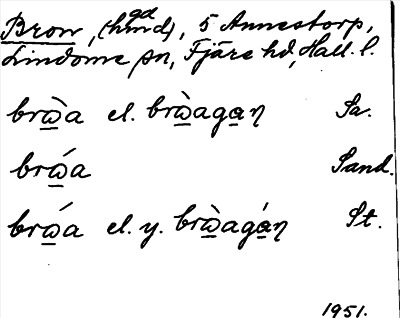 Bron, (hmd gd), 5 Annestorp,
Lindome sn, Fjäre hd, Hall. l.
brὼ̱a el. brὼ̱aga̱ŋ Sa.
brώ̱a Sand.
brώ̱a el. y. brὼ̱agá̱ŋ St.
1951.